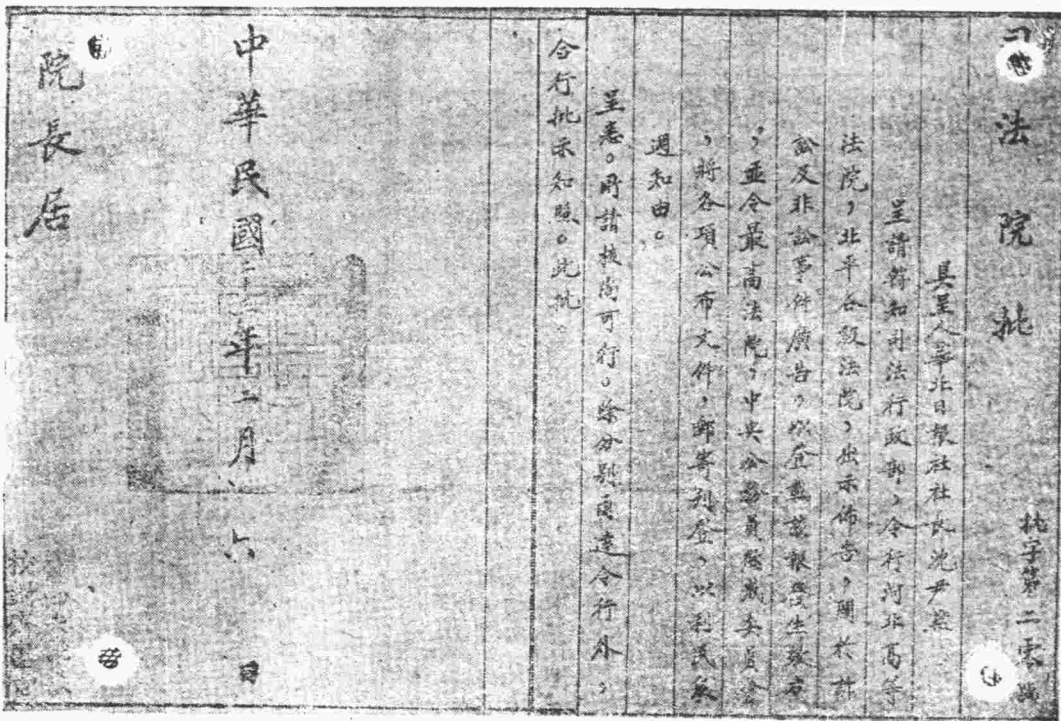 司法院批
批字第二零號
具呈人華北日報社社長沈尹默
呈請轉知司法行政部,令行河北高等
法院,北平各級法院,出示佈告,關於訴
訟及非訟事件廣告,以登載該報發生效力
,並令最高法院,中央公務員懲戒委員會
,將各項公布文件,郵寄刊登,以利民衆
週知由。
呈悉。所請核尚可行。除分別函達令行外,
合行批示知照。此批。
中華民國二十二年二月六日
院長居